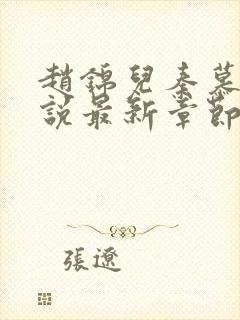 趙錦兒秦慕
說最新章節
張遼